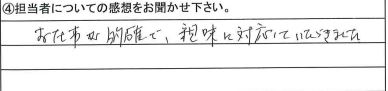 ④担当者についての感想をお聞かせ下さい。
お仕事が的確で、親味に対応していただきました